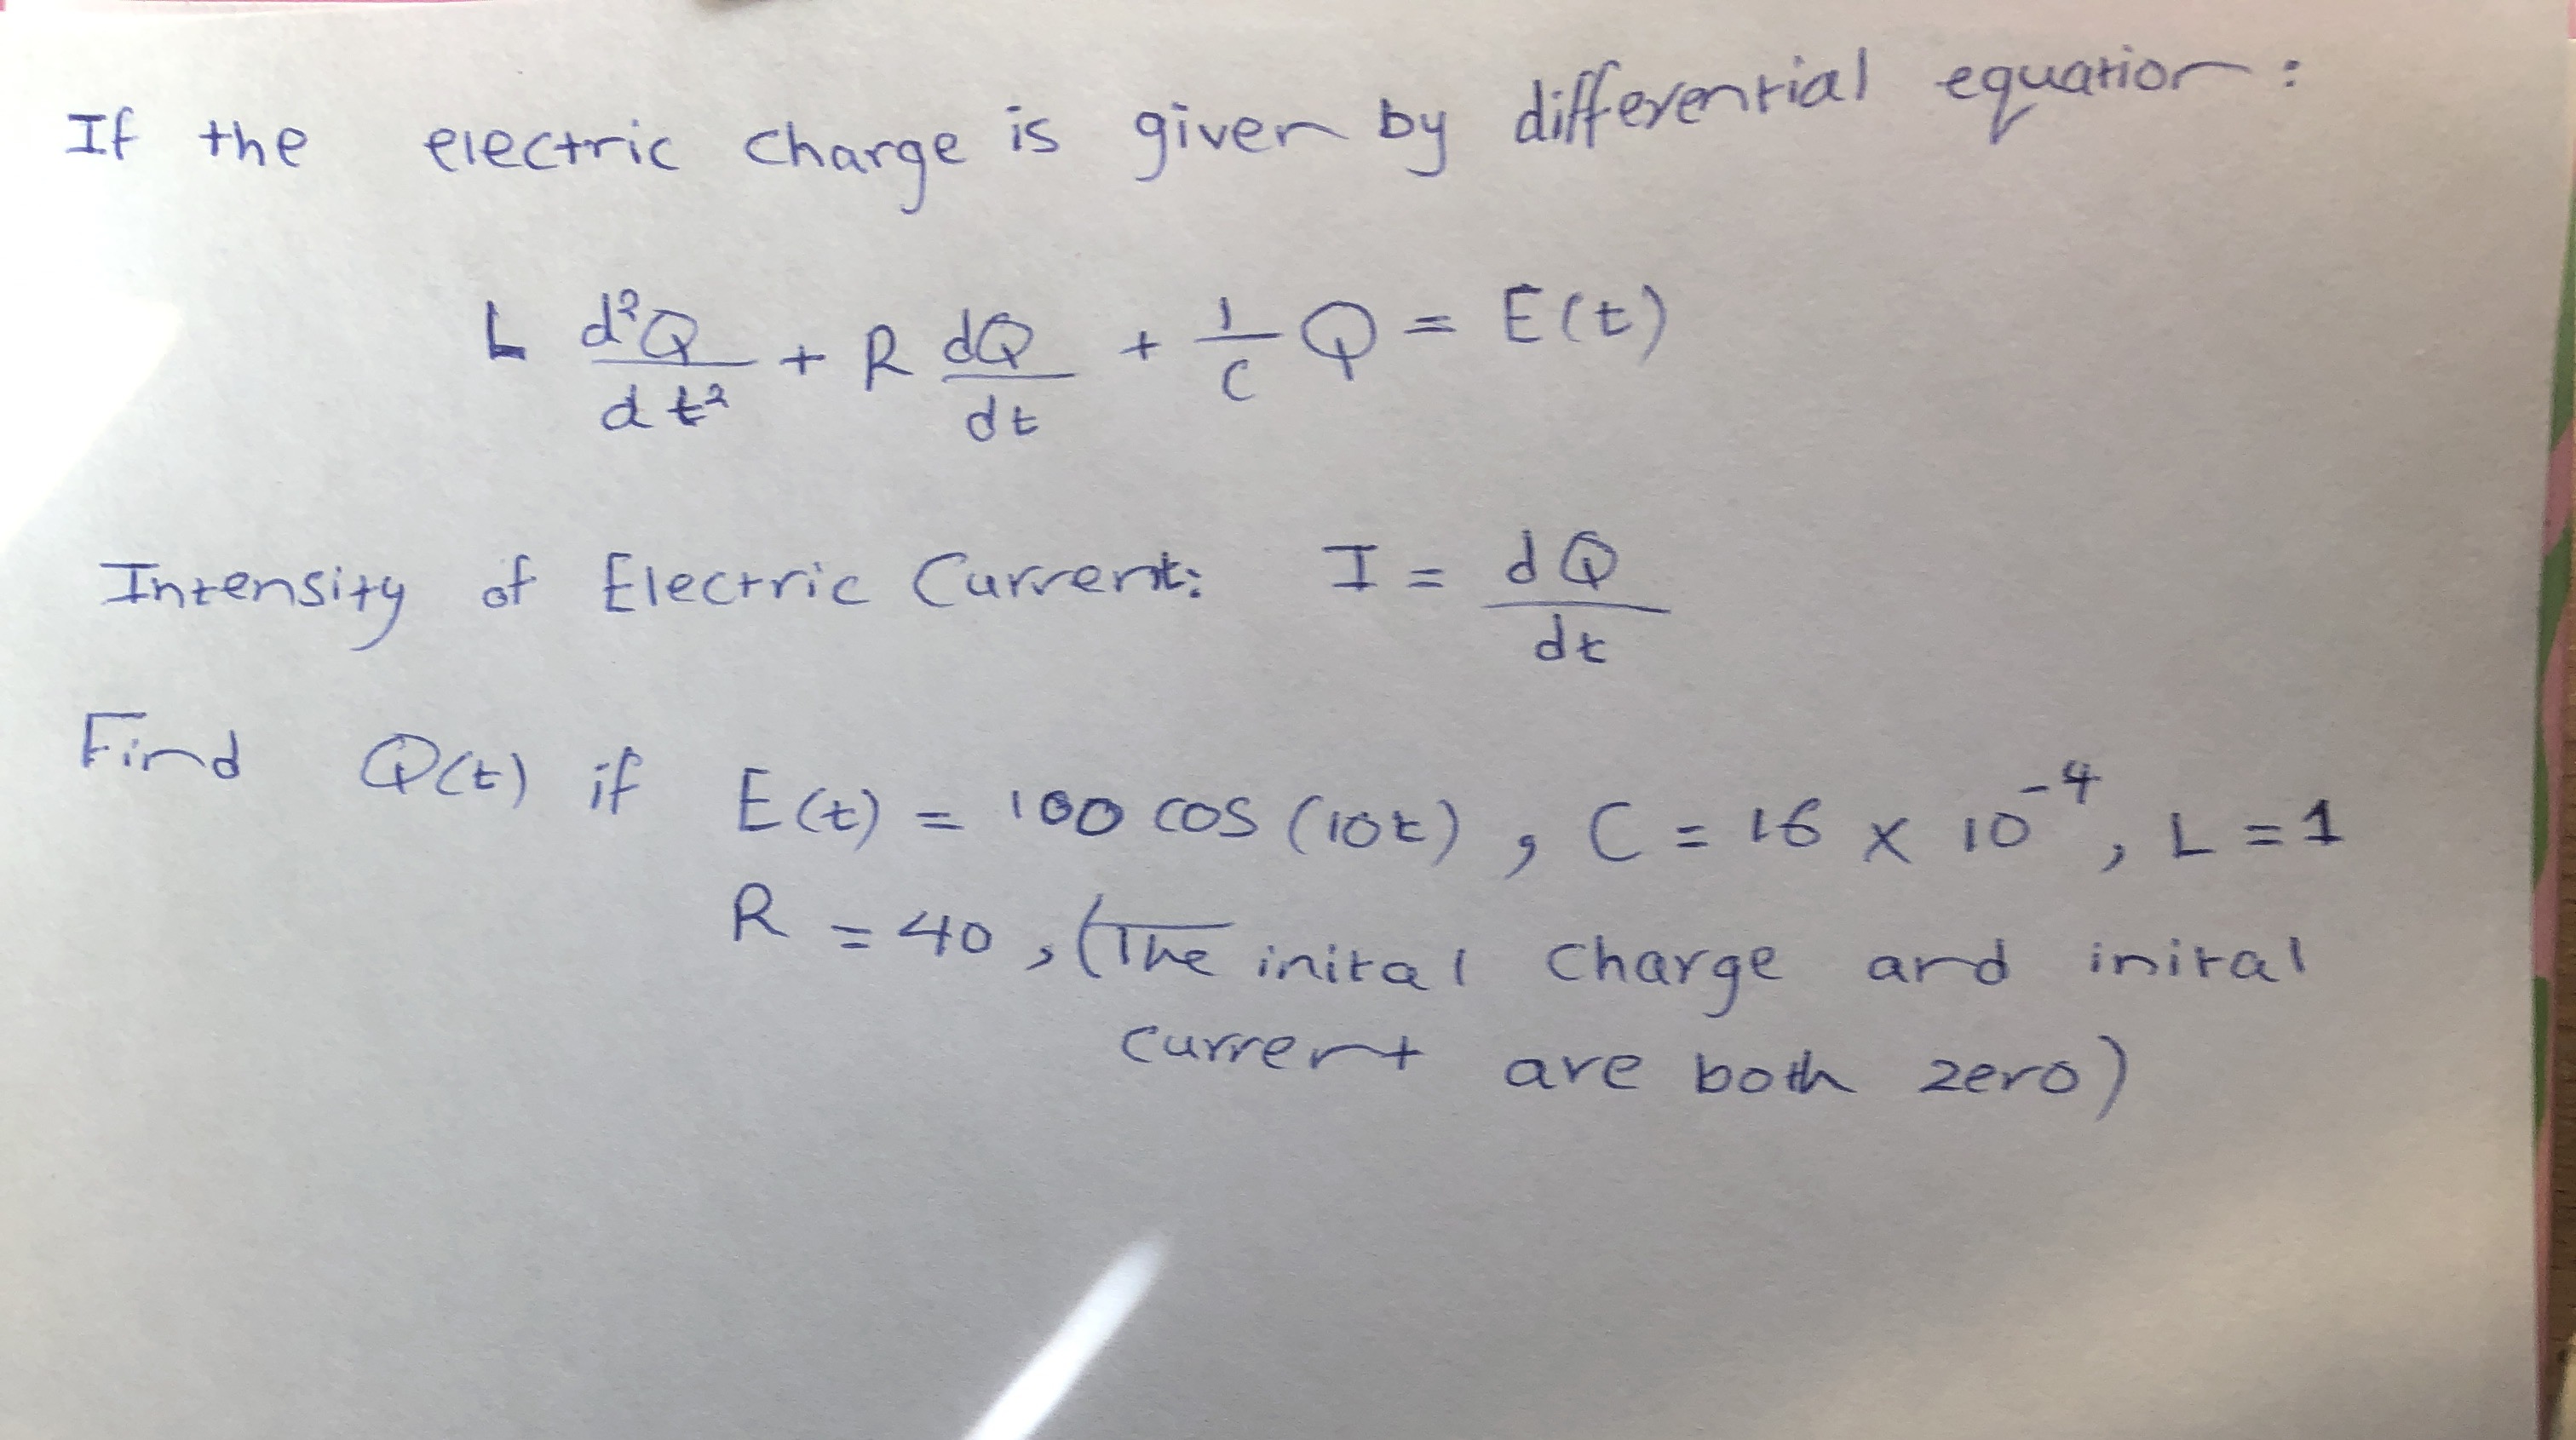 If the electric charge is given by differential equation:
L d²Q/dt² + R dQ/dt + 1/C Q = E(t)
Intensity of Electric Current: I = dQ/dt
Find Q(t) if E(t) = 100 cos (10t) , C = 16 × 10⁻⁴ , L = 1
R = 40 , (The inital charge and inital
current are both zero)